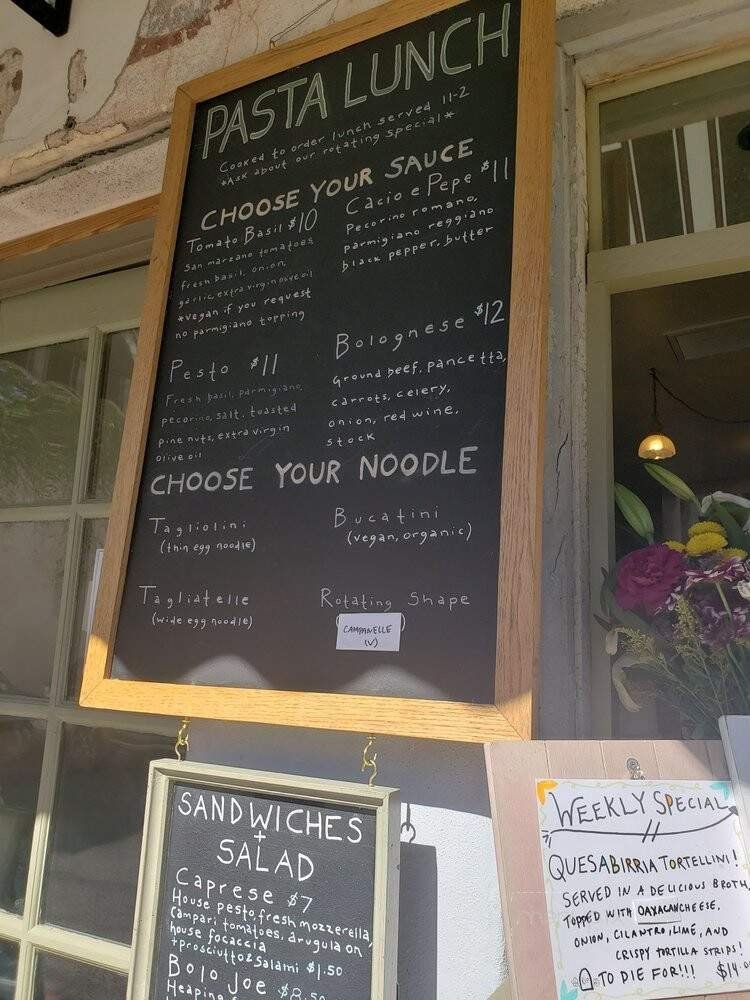 PASTA LUNCH
Cooked to order lunch served 11-2
*Ask about our rotating special*
CHOOSE YOUR SAUCE
Tomato Basil $10
San marzano tomatoes
fresh basil, onion,
garlic, extra virgin olive oil
*vegan if you request
no parmigiano topping
Cacio e Pepe $11
Pecorino romano,
parmigiano reggiano
black pepper, butter
Pesto $11
Fresh basil, parmigiano,
pecorino, salt, toasted
pine nuts, extra virgin
olive oil
Bolognese $12
Ground beef, pancetta,
carrots, celery,
onion, red wine,
stock
CHOOSE YOUR NOODLE
Tagliolini
(thin egg noodle)
Bucatini
(vegan, organic)
Tagliatelle
(wide egg noodle)
Rotating Shape
CAMPANELLE
(V)
SANDWICHES
+
SALAD
Caprese $7
House pesto, fresh mozzerella,
Campari tomatoes, arugula on
house focaccia
+prosciutto & Salami $1.50
Bolo Joe $8.50
Heaping
WEEKLY SPECIAL
QUESABIRRIA TORTELLINI!
SERVED IN A DELICIOUS BROTH
TOPPED WITH OAXACAN CHEESE,
ONION, CILANTRO, LIME, AND
CRISPY TORTILLA STRIPS!
TO DIE FOR!!! $14.